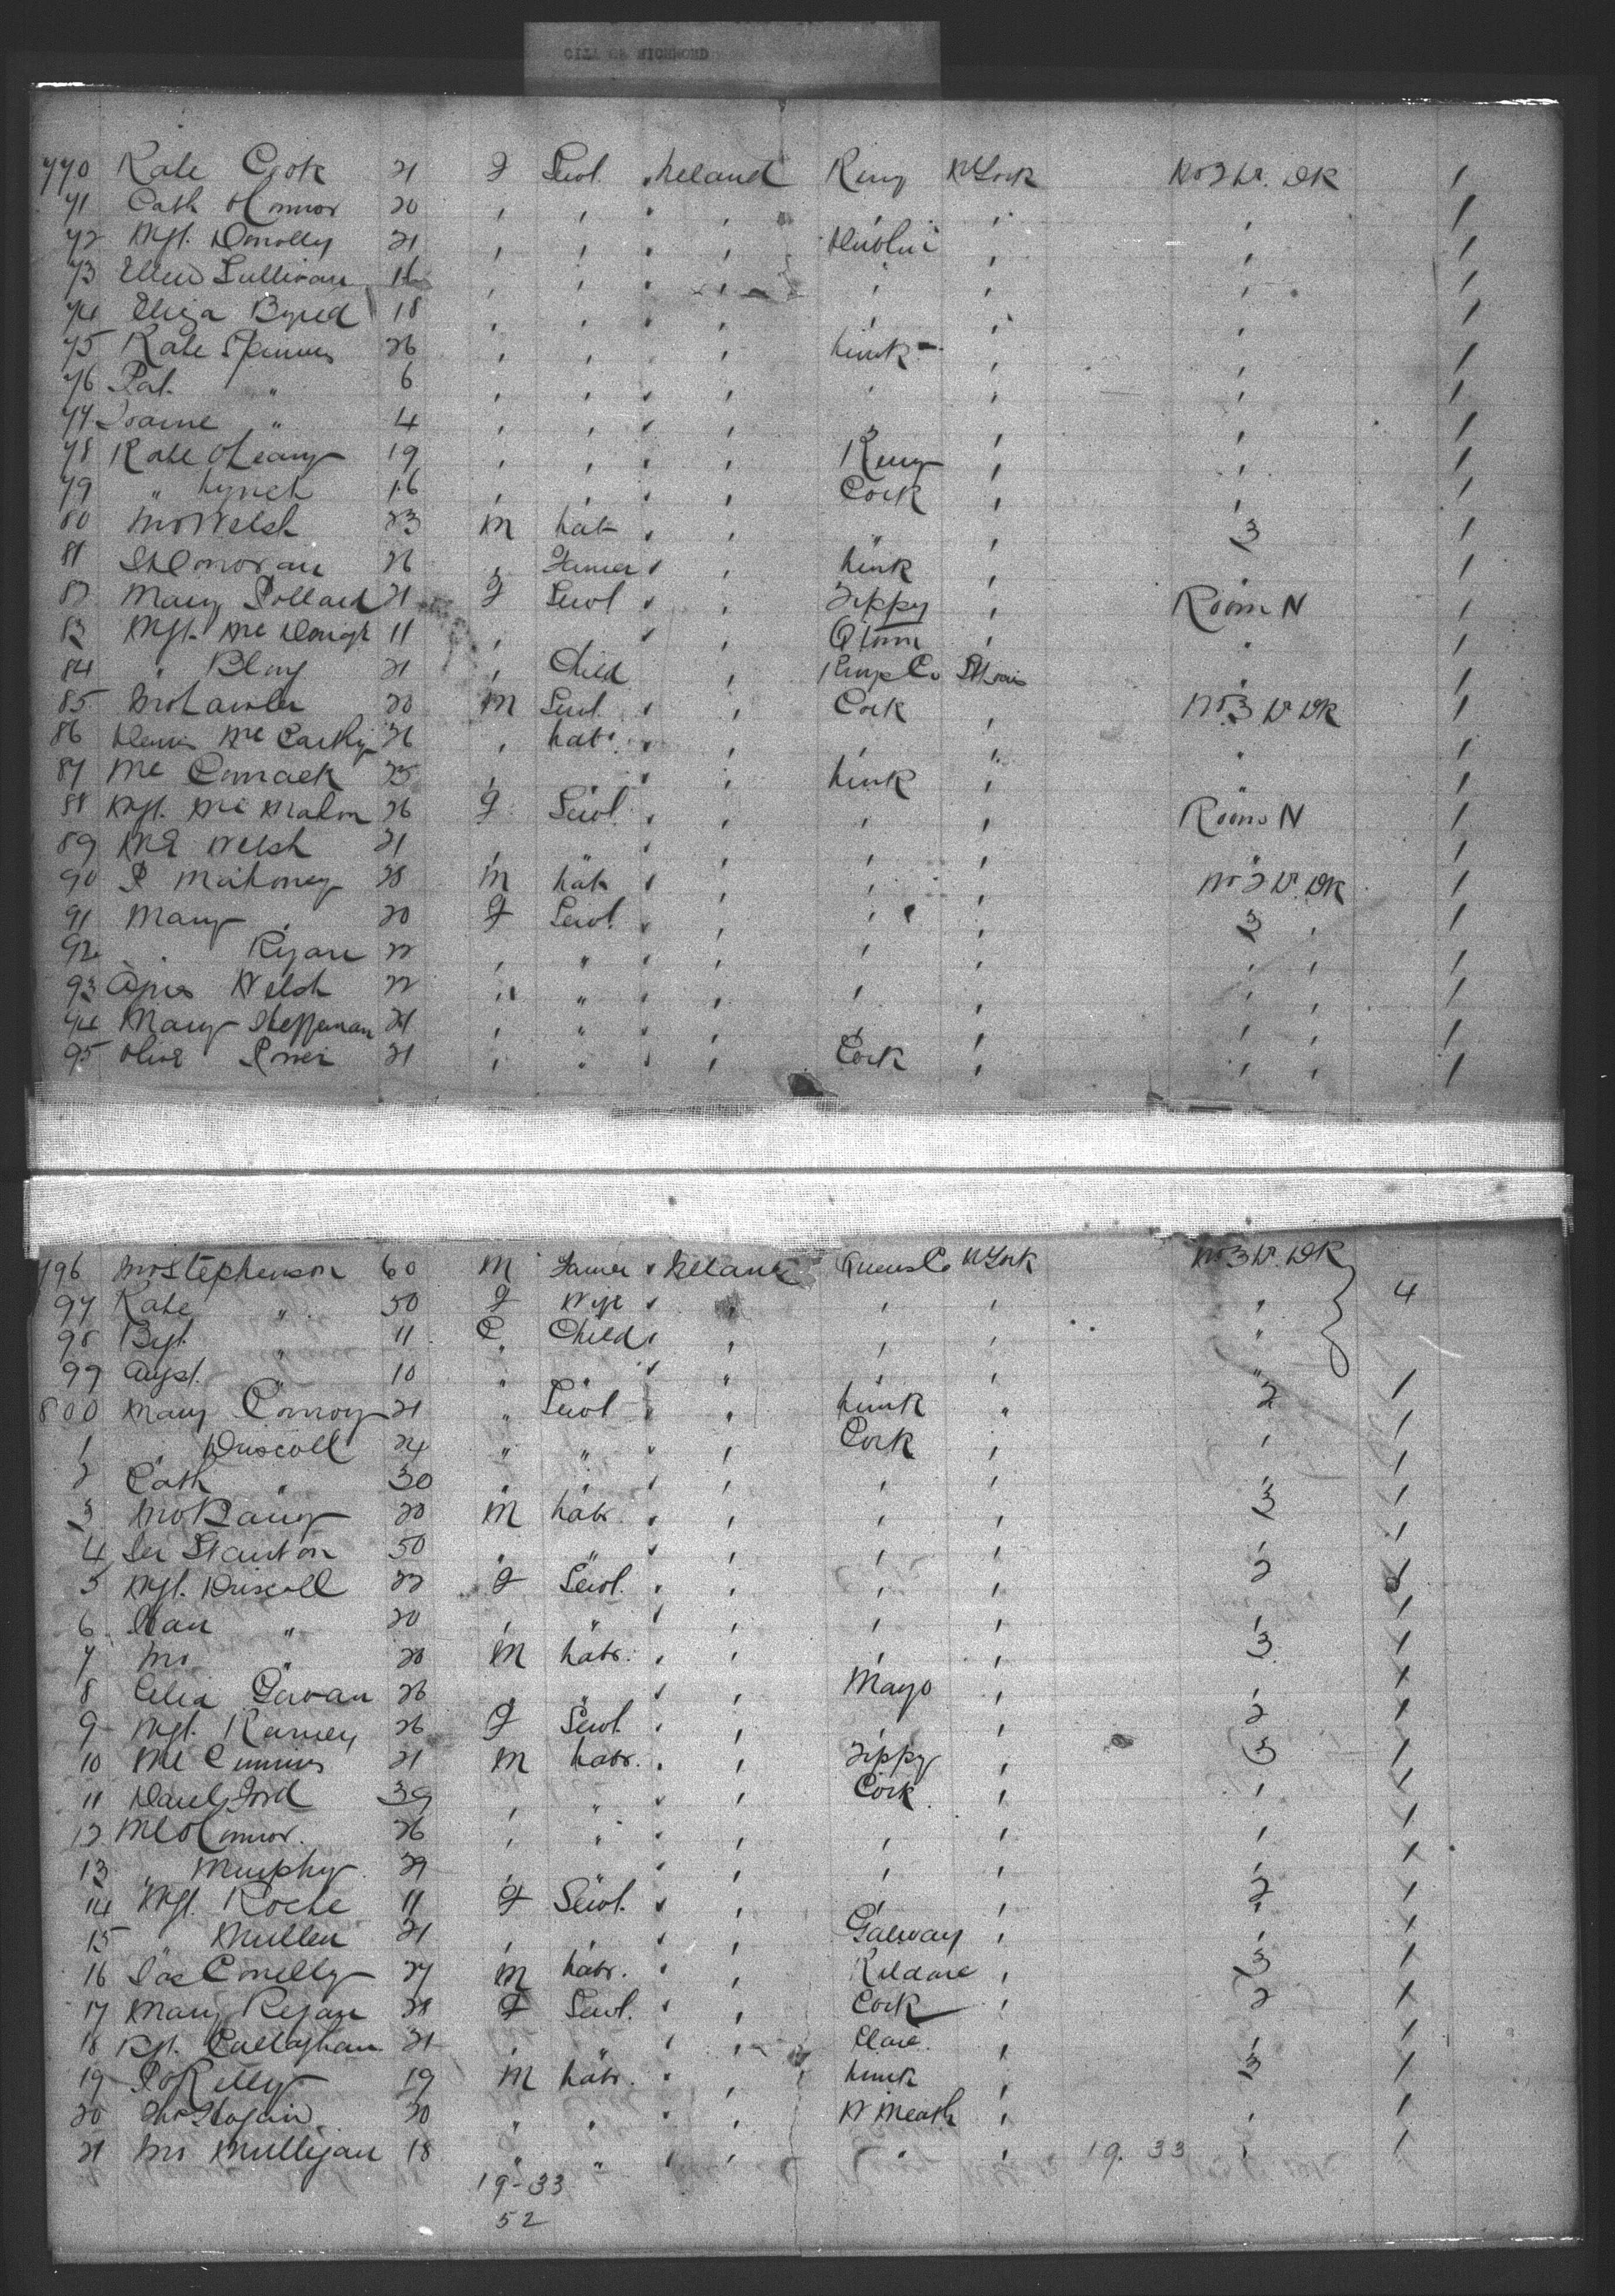 CITY OF RICHMOND
770 Kate Crok 21 F Servt. Ireland Kerry N York No 2 Lr. DK 1
71 Cath OConnor 20 , , , , , , , 1
72 Mgt. Donolly 21 , , , , Dublin , , 1
73 Ellen Sullivan 16 , , , , , , , 1
74 Eliza Byred 18 , , , , , , , 1
75 Kate 26 , , , , Limk , , 1
76 Pat. " 6 , , , , , , , 1
77 " 4 , , , , , , , 1
78 Kate OLeary 19 , , , , Kerry , , 1
79 " Lynch 16 , , , , Cork , , 1
80 Jno Welsh 23 M Labr , , " , 3 1
81 Donovan 26 , Farmer , , Limk , , 1
82 Mary Pollard 21 F Servt , , Tippy , Room N 1
83 Mgt. Mc Dongh 11 , , , , " 1
84 " Blay 21 , Child , Kings Co St Louis , 1
85 Jno Lawler 20 M Servt , , Cork , No 3 Lr DK 1
86 Denis Mc Carthy 26 , Labr , , , " " 1
87 Mc Cormack 25 , , , , Limk , " 1
88 Mgt. Mc Mahon 26 F Servt. , , , , Room N 1
89 Welsh 21 , " , , , , " 1
90 P Mahoney 28 M Labr , , , , No 2 Lr. DK 1
91 Mary , 20 F Servt , , , , 3 , 1
92 . Ryan 22 , " , , , , , , 1
93 Agnes Welsh 22 , " , , , , , , 1
94 Mary Heffernan 21 , " , , , , , , 1
95 Olive Power 21 , " , , Cork , , , 1
796 Jno Stephenson 60 M Farmer , Ireland Queens Co N York No 3 Lr. DK
97 Kate " 50 F Wife , , , , , 4
98 Bgt. " 11 C Child , , , , "
99 Augst. " 10 " " , " , , "
800 Mary Conroy 21 " Servt , , Limk " 2 1
1 , Driscoll 24 " " , , Cork , , 1
2 Cath " 30 " " , , , , , 1
3 Jno Barry 20 M Labr. , , , , 3 1
4 Stanton 50 , " , , , , , 1
5 Mgt. Driscoll 22 F Servt. , , , , 2 1
6 Han " 20 , " , , , , , 1
7 Jno " 20 M Labr. , , , , 3 1
8 Celia Gavan 26 , " , , Mayo , , 1
9 Mgt. Karney 26 F Servt. , , , , 2 1
10 Ml 21 M Labr. , , Tippy , 3 1
11 Danl Ford 39 , " , , Cork , , 1
12 Ml OConnor. 26 , " , , , , , 1
13 " Murphy 29 , " , , , , , 1
14 Mgt. Roche 11 F Servt. , , , , 2 1
15 " Mullen 21 , , , , Galway , , 1
16 Jas Conelly 27 M Labr. , , Kildare , 3 1
17 Mary Regan 28 F Servt. , , Cork , 2 1
18 Bgt. Callaghan 21 , " , , Clare , , 1
19 P OKelly 19 M Labr. , , Limk , 3 1
20 Thos Hogan 20 " , , , W Meath , , 1
21 Jno Mulligan 18 " " , , " , 19. 33 , 1
19-33
52